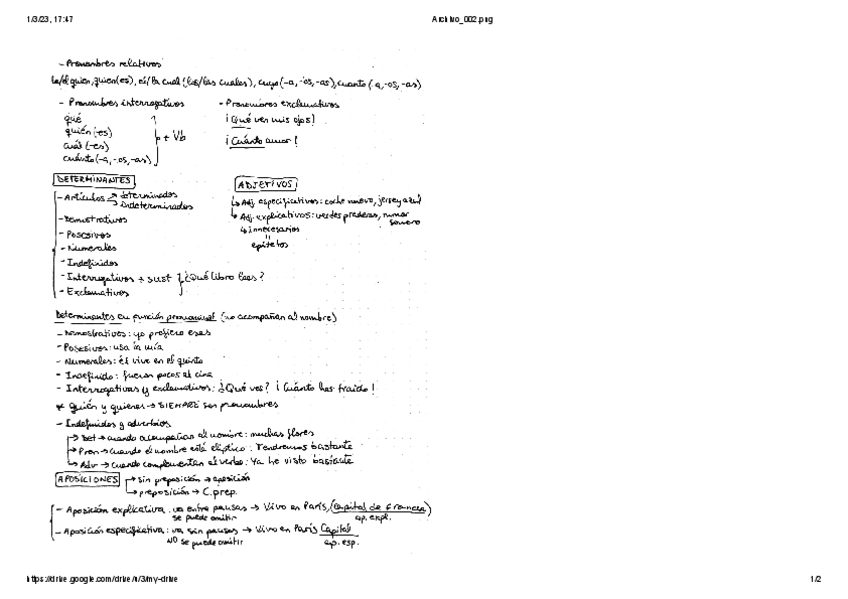 1/3/23, 17:47
Archivo_002.png
- Pronombres relativos
quien(es), el/la cual (los/las cuales), cuyo (-a, -os, -as), cuanto (-a, -os, -as)
- Pronombres interrogativos
- Pronombres exclamativos
qué
quién (-es)
cuál (-es)
cuánto (-a, -os, -as)
+ Vb
¡Qué ven mis ojos!
¡Cuánto amor!
DETERMINANTES
ADJETIVOS
- Artículos → determinados
indeterminados
- Demostrativos
- Posesivos
- Numerales
- Indefinidos
- Interrogativos + sust
- Exclamativos
¿Qué libro lees?
Adj. especificativos: coche nuevo, jersey azul
Adj. explicativos: verdes praderas, rumor sonoro
innecesarios
epítetos
Determinantes en función pronominal (no acompañan al nombre)
- Demostrativos: yo prefiero esas
- Posesivos: usa la mía
- Numerales: él vive en el quinto
- Indefinido: fueron pocos al cine
- Interrogativos y exclamativos: ¿Qué ves? ¡Cuánto has traído!
* Quién y quienes → SIEMPRE son pronombres
- Indefinidos y adverbios
→ Det → cuando acompañan al nombre: muchas flores
→ Pron → cuando el nombre está elíptico: Tendremos bastante
→ Adv → cuando complementan al verbo: Ya he visto bastante
APOSICIONES
→ sin preposición → aposición
→ preposición → C. prep.
- Aposición explicativa: va entre pausas → Vivo en París, (capital de Francia)
se puede omitir
ap. expl.
- Aposición especificativa: va sin pausas → Vivo en París Capital
NO se puede omitir
ap. esp.
https://drive.google.com/drive/u/3/my-drive
1/2